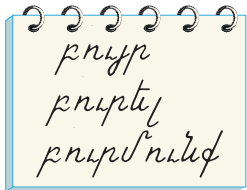 բույր
բուրել
բուրմունք